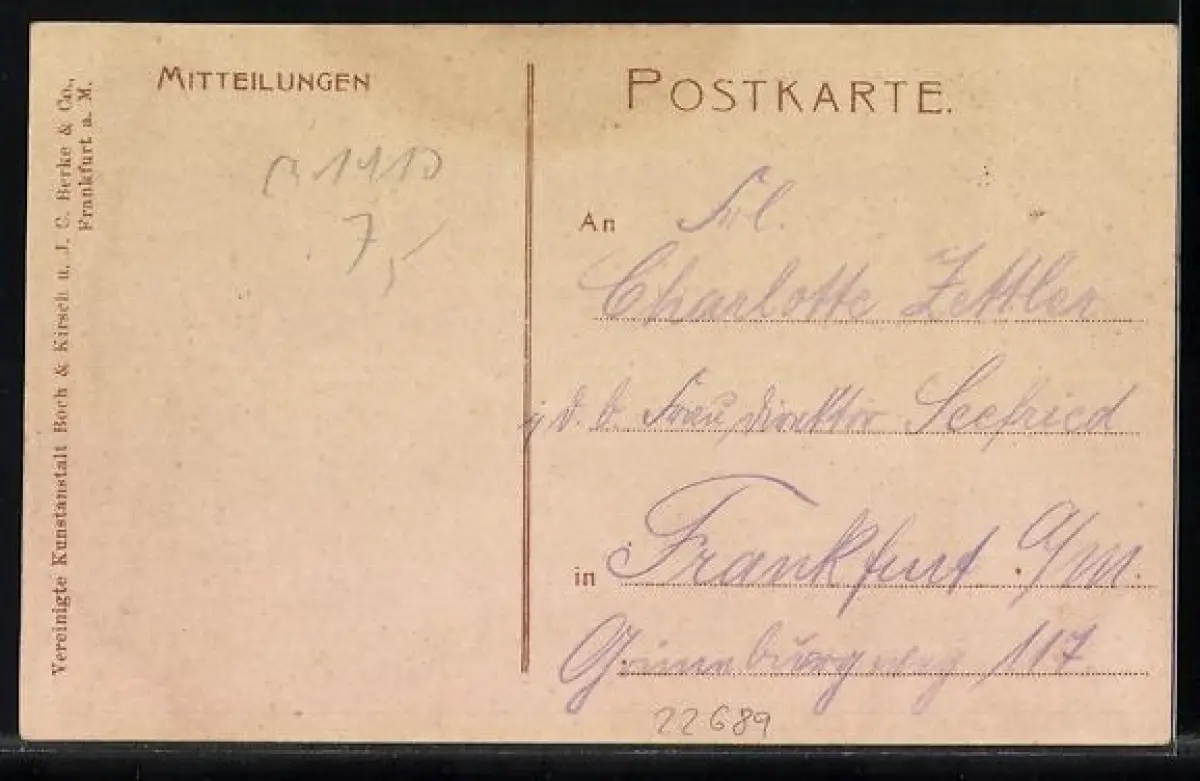 MITTEILUNGEN
POSTKARTE.
Vereinigte Kunstanstalt Boch & Kirsch u. J. C. Berke & Co.,
Frankfurt a. M.
7,
An Frl.
Charlotte Zettler
Frau Direktor Seefried
in Frankfurt a/M.
Grüneburgweg 117
22689